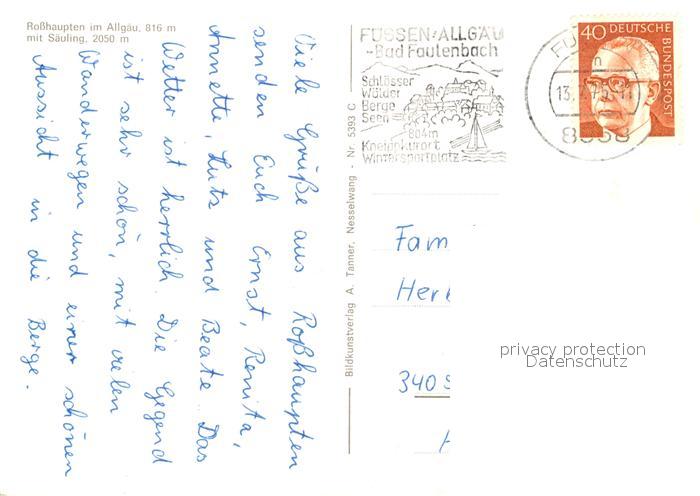 Roßhaupten im Allgäu, 816 m
mit Säuling, 2050 m
Viele Grüße aus Roßhaupten
senden Euch Ernst, Renita,
Annette, Lutz und Beate. Das
Wetter ist herrlich. Die Gegend
ist sehr schön, mit vielen
Wanderwegen und einer schönen
Aussicht in die Berge.
Bildkunstverlag A. Tanner, Nesselwang - Nr. 5393 C
FÜSSEN/ALLGÄU
-Bad Faulenbach
Schlösser
Wälder
Berge
Seen
804m
Kneippkurort
Wintersportplatz
40 DEUTSCHE
BUNDESPOST
Fam
Her
340
privacy protection
Datenschutz